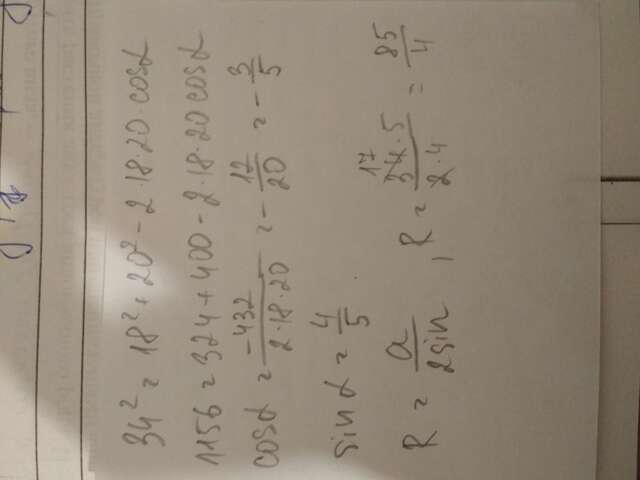 34² = 18² + 20² - 2·18·20·cosα
1156 = 324 + 400 - 2·18·20 cosα
cosα = -432/(2·18·20) = -12/20 = -3/5
sin α = 4/5
R = a/(2sin), R = 17 34·5/(2·4) = 85/4